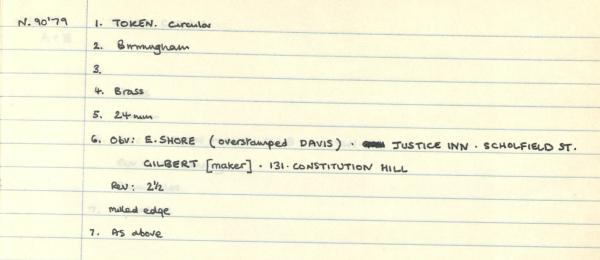 N. 90'79 1. TOKEN. Circular
2. Birmingham
3.
4. Brass
5. 24mm
6. Obv: E. SHORE (overstamped DAVIS) · JUSTICE INN · SCHOLFIELD ST.
GILBERT [maker] · 131 · CONSTITUTION HILL
Rev: 2½
milled edge
7. As above